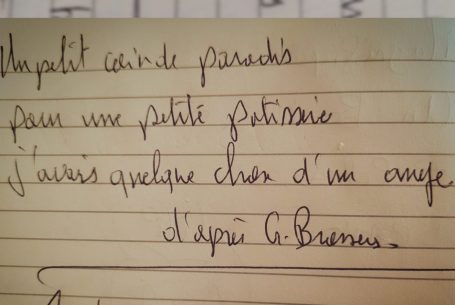 Un petit coin de paradis
pour une petite patisserie
j'avais quelque chose d'un ange
d'après G. Brassens.